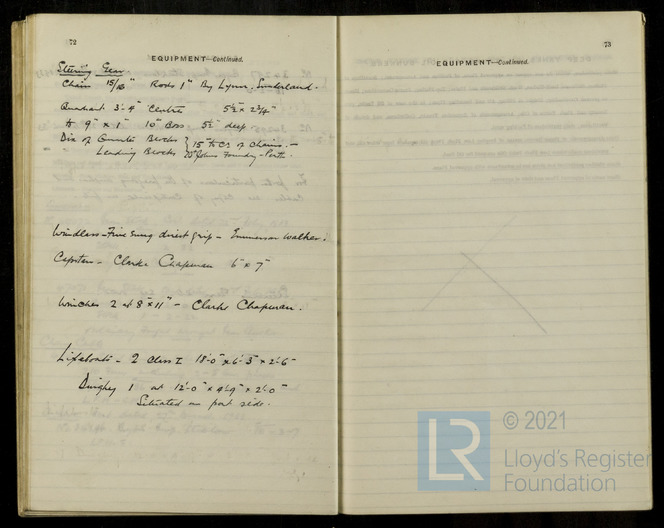 72
EQUIPMENT—Continued.
Steering Gear
Chain 15/16" Rods 1" By Lynn, Sunderland.
Quadrant 3'-4" Centre 5½" x 2¾"
to 9" x 1" 10" Boss 5½" deep
Dia of Blocks } 15" to Cs. of Chains.
Leading Blocks } St Johns Foundry - Perth.
Windlass - direct grip - Emmerson Walker.
Capstan - Clarke Chapman 6" x 7"
Winches 2 at 8" x 11" - Clarke Chapman.
Lifeboats - 2 Class I 18'-0" x 6'-3" x 2'-6"
Dinghy 1 at 12'-0" x 4'-9" x 2'-0"
Situated on port side.
73
EQUIPMENT—Continued.
LR © 2021
Lloyd's Register
Foundation